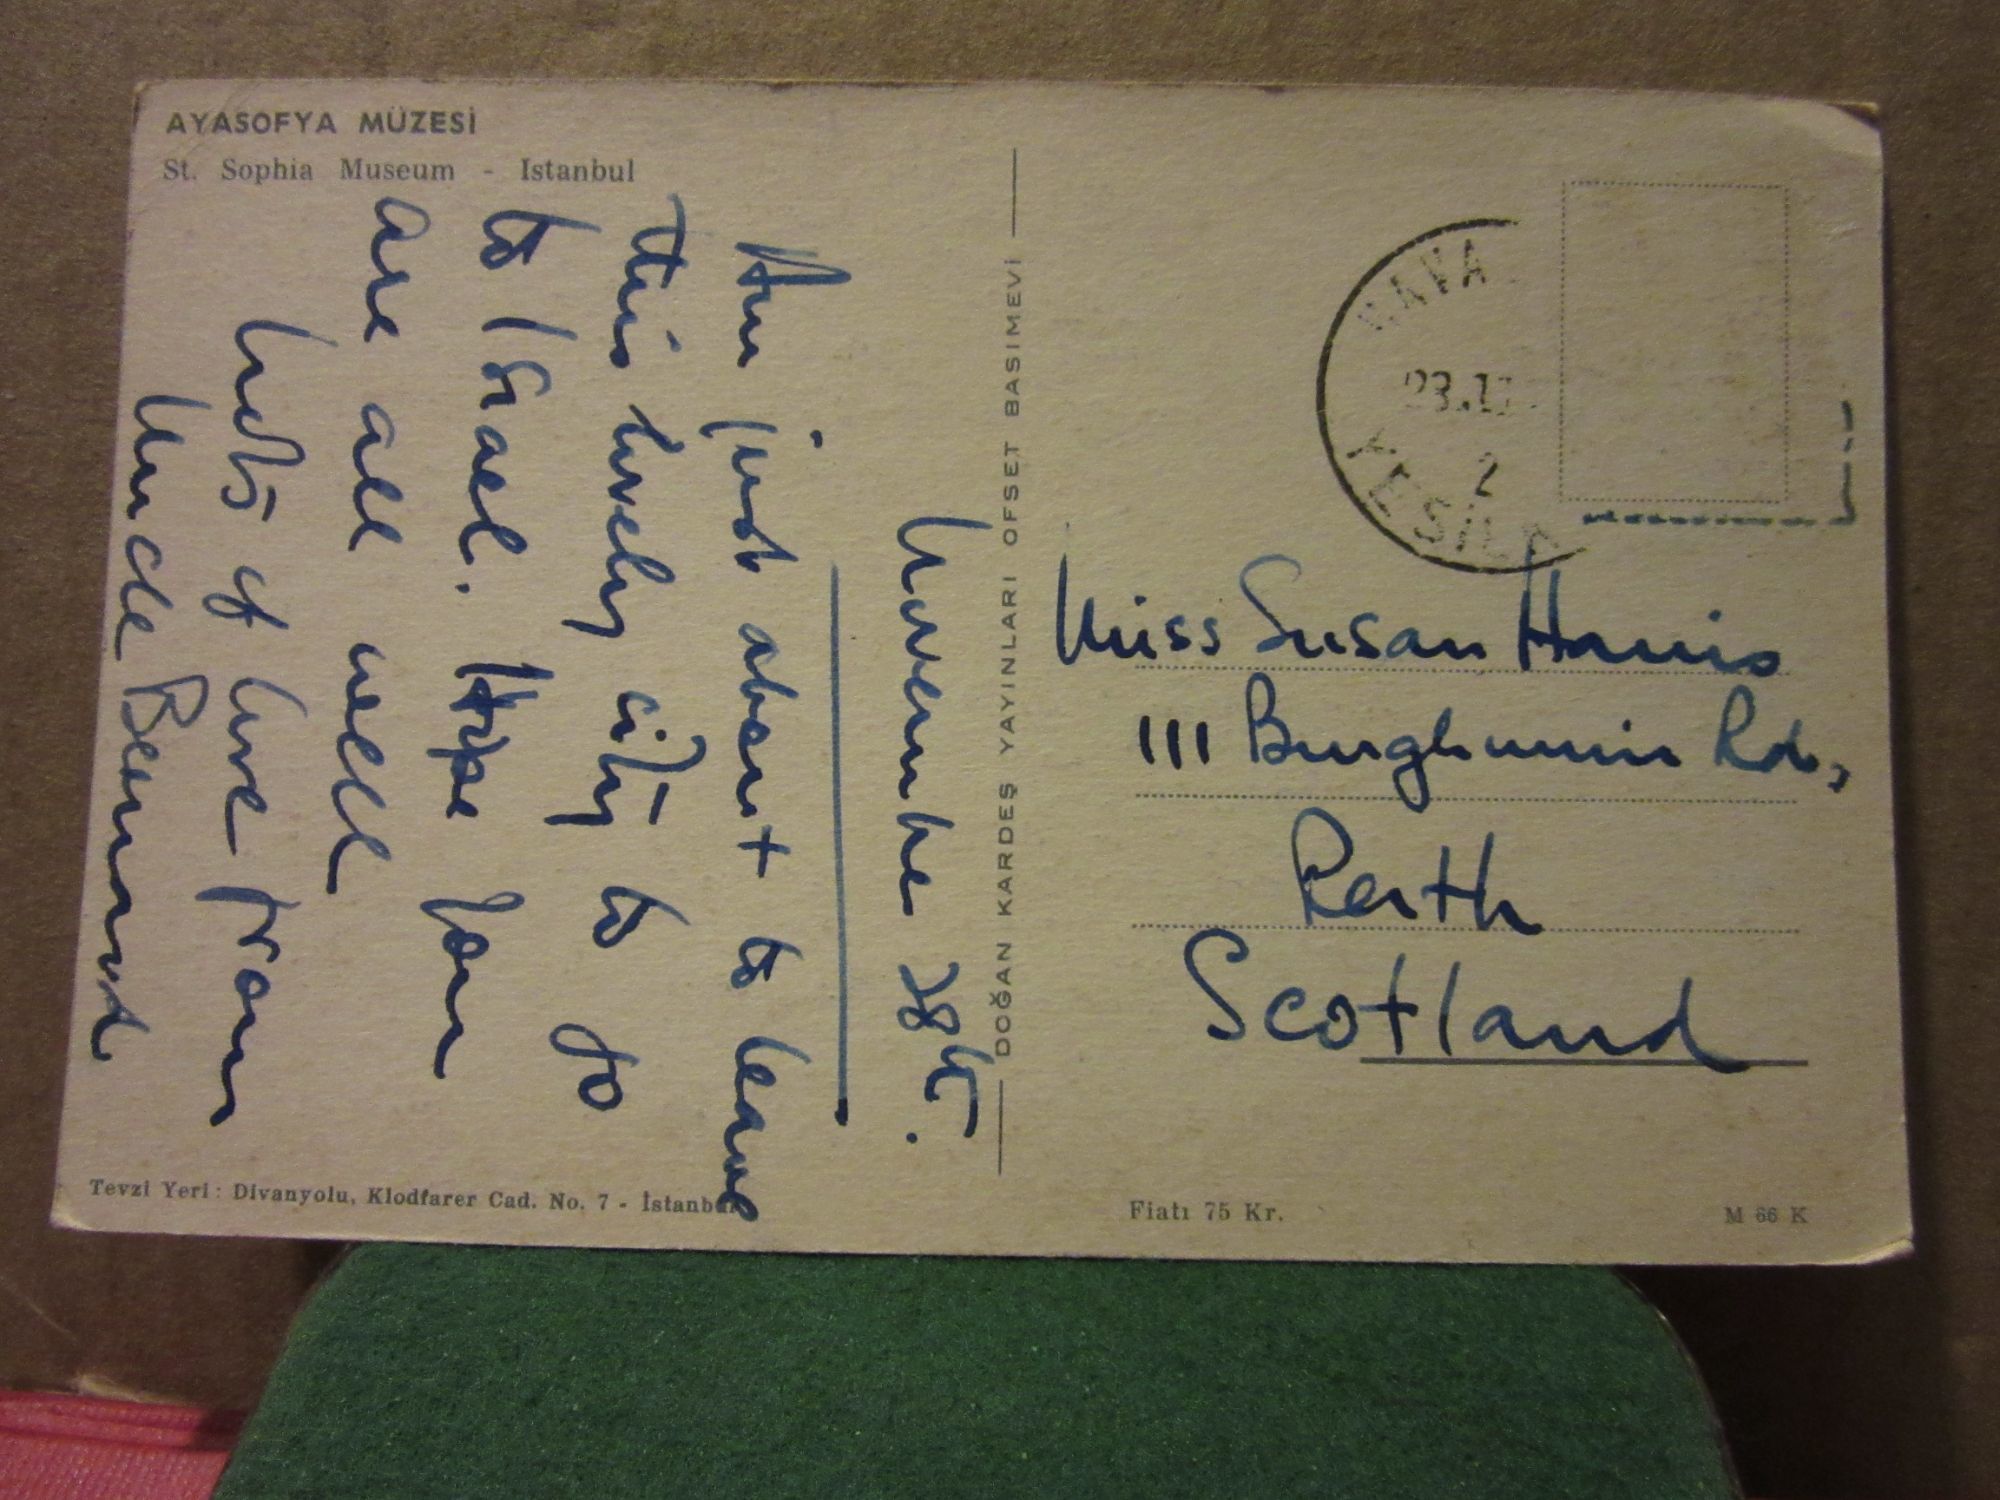 AYASOFYA MÜZESİ
St. Sophia Museum - Istanbul
November 28th.
Am just about to leave
this lovely city to go
to Israel. Hope you
are all well
Lots of love from
Uncle Bernard
DOĞAN KARDEŞ YAYINLARI OFSET BASIMEVİ
YEŞİL
2
Miss Susan Harris
111 Burghmuir Rd.,
Perth
Scotland
Tevzi Yeri : Divanyolu, Klodfarer Cad. No. 7 - İstanbul
Fiatı 75 Kr.
M 66 K